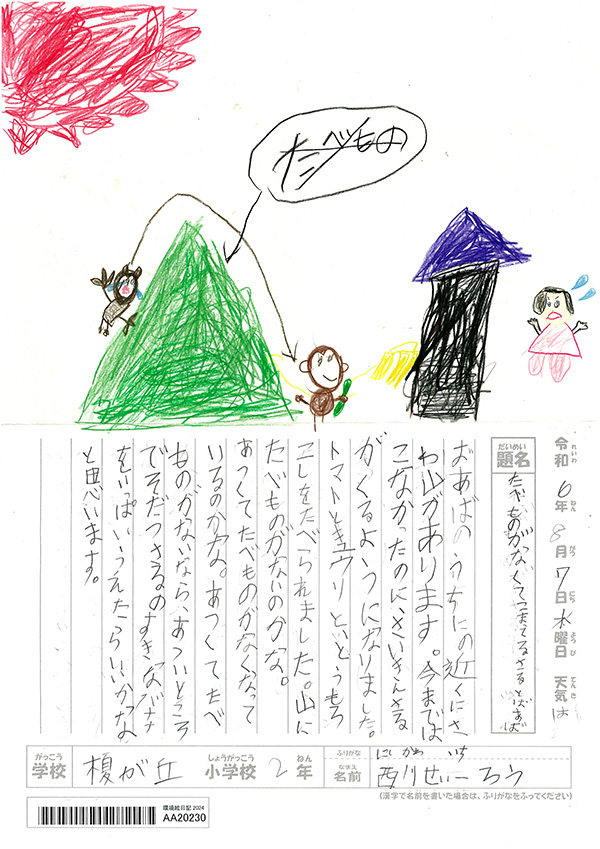 たべもの
令和6年8月7日水曜日 天気 は
れいわ ねん がつ にち ようび てんき
だいめい
題名
たべものがなくてこまてるさるとばあば
おあばのうちにの近くにさ
わ山があります。今までは
こなかったのに、さいきんさる
がくるようになりました。
トマトとキュウリとととうもろ
こしをたべられました。山に
たべものがないのかな。
あつくてたべものがなくなって
いるのかな。あつくてたべ
ものがないなら、あついところ
でそだつさるのすきなバナナ
をいっぱいうえたらいいかな
と思います。
がっこう しょうがっこう ねん
学校 榎が丘 小学校 2年
ふりがな にしかわ いち
なまえ
名前 西川せいーろう
(漢字で名前を書いた場合は、ふりがなをふってください)
環境絵日記 2024
AA20230